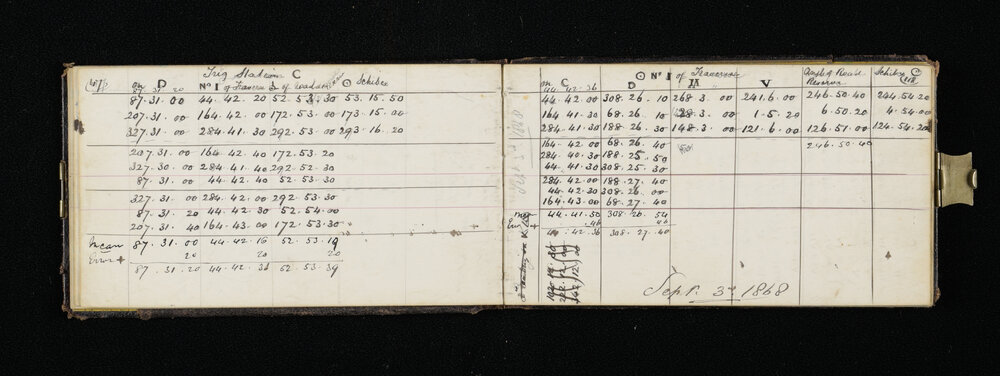 Trig Station C
on D No I of Travers I of Waddam O Schiber
87.31.20
87.31.00 44.42.20 52.53.30 53.15.50
207.31.00 164.42.00 172.53.00 173.15.00
327.31.00 284.41.30 292.53.00 293.16.20
207.31.00 164.42.40 172.53.20
327.30.00 284.41.40 292.52.30
87.31.00 44.42.40 52.53
327.31.00 284.42.00 292.53.30
87.31.20 44.42.30 52.54.00
207.31.40 164.43.00 172.53.30
Mean 87.31.00 44.42.16 52.53.19
Error + 20 20 20
87.31.20 44.42.36 52.53.39
on C O No I of Traverse Angle of Road Reserve Schiber
44.42.36 D IA V
44.42.00 308.26.10 268.3.00 241.6.00 246.50.40 244.54.20
164.41.30 68.26.10 28.3.00 1.5.20 6.50.20 4.54.00
284.41.30 188.26.30 148.3.00 121.6.00 126.51.00 124.54.20
164.42.00 68.26.40 246.50.40
284.40.30 188.25.50
44.41.30 308.25.30
284.42.00 188.27.40
44.42.30 308.26.00
164.43.00 68.27.40
Mean 44.41.50 308.26.54
Error + 46 46
44.42.36 308.27.40
Sept. 3rd 1868